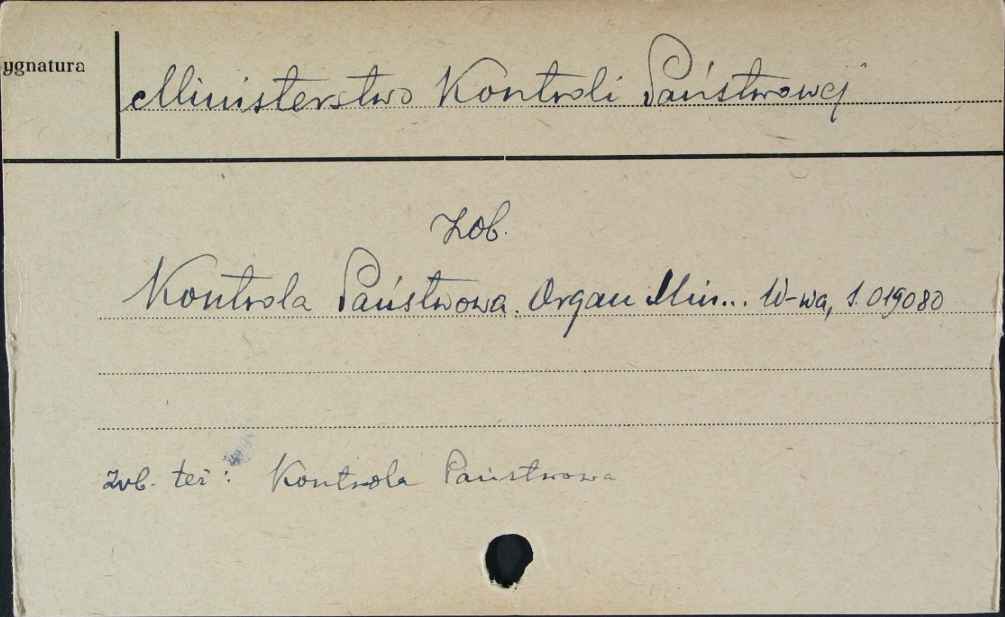 ygnatura
Ministerstwo Kontroli Państwowej
Zob.
Kontrola Państwowa. Organ Min... W-wa, S. 019080
Zob. też: Kontrola Państwowa